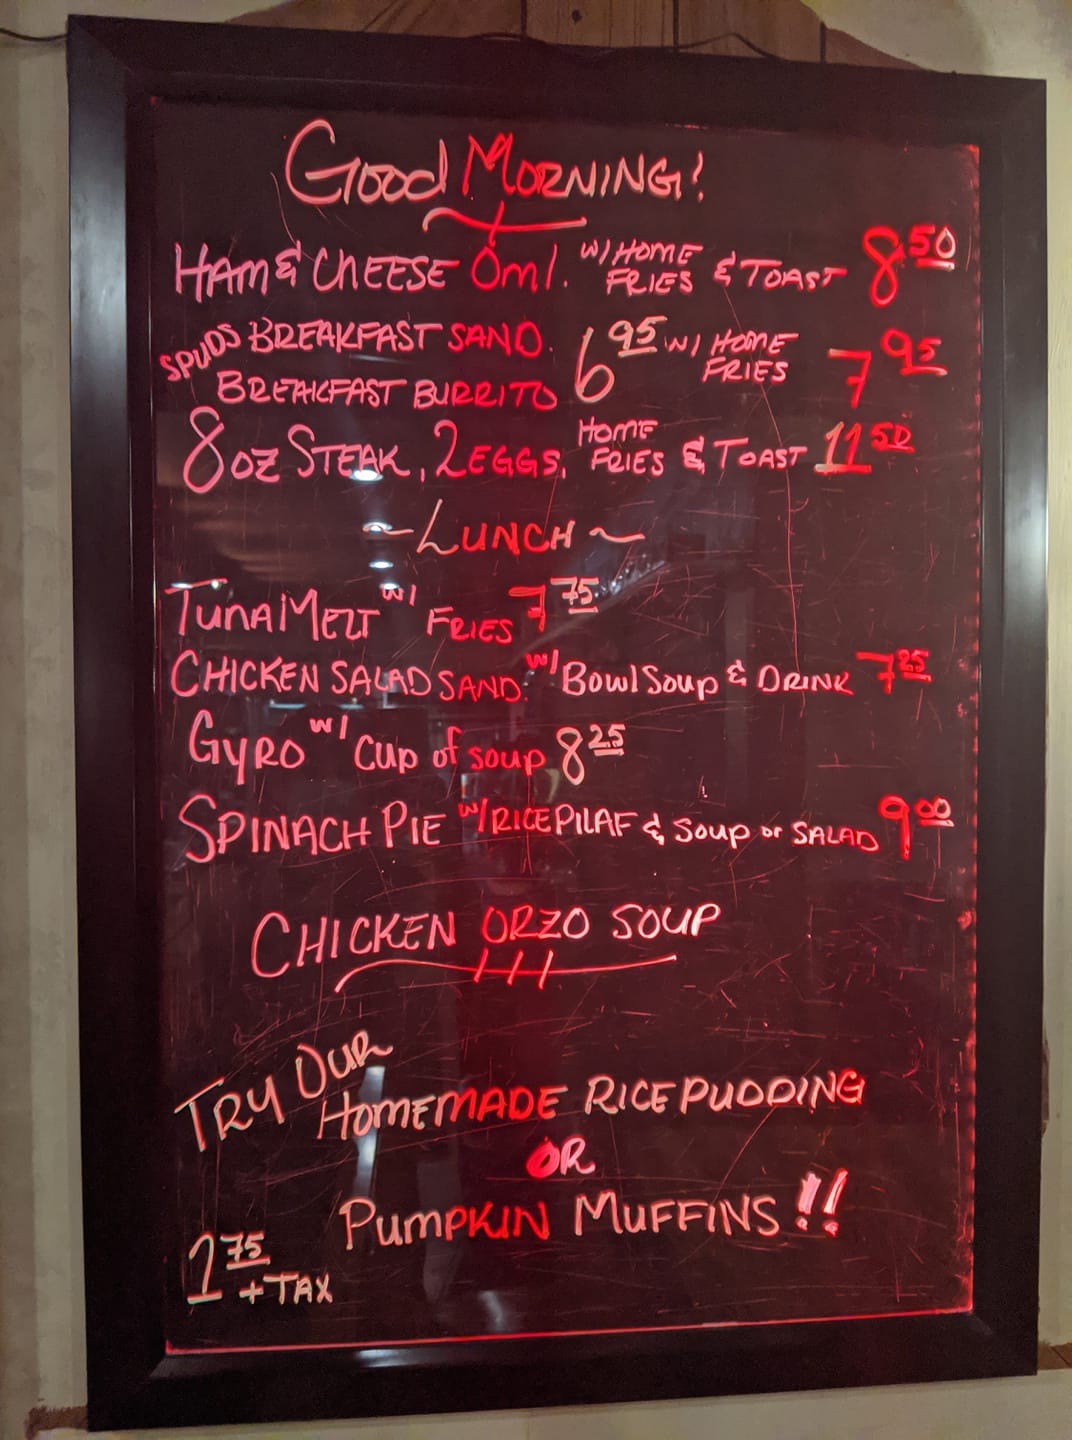 Good Morning!
Ham & Cheese Oml. w/ Home Fries & Toast 8.50
Spuds Breakfast Sand.
Breakfast Burrito 6.95 w/ Home Fries 7.95
8oz Steak, 2 Eggs, Home Fries & Toast 11.50
~Lunch~
Tuna Melt w/ Fries 7.75
Chicken Salad Sand. w/ Bowl Soup & Drink 7.25
Gyro w/ Cup of soup 8.25
Spinach Pie w/ Rice Pilaf & Soup or Salad 9.00
Chicken Orzo Soup
Try Our
Homemade Rice Pudding
or
Pumpkin Muffins!!
+ Tax